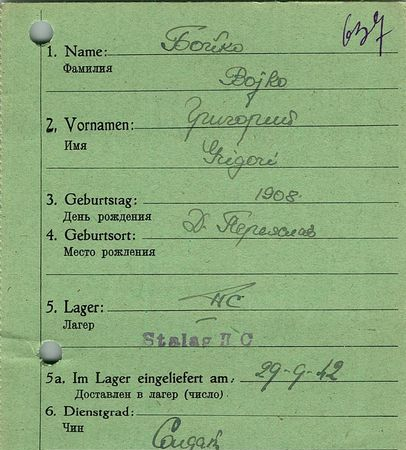 637
Бойко
1. Name:
Фамилия
Bojko
2. Vornamen: Григорий
Имя
Grigori
3. Geburtstag: 1908.
День рождения
4. Geburtsort: Д. Переяслав
Место рождения
5. Lager: IIC
Лагер
Stalag II C
5a. Im Lager eingeliefert am: 29-9-42
Доставлен в лагер (число)
6. Dienstgrad:
Чин
Солдат